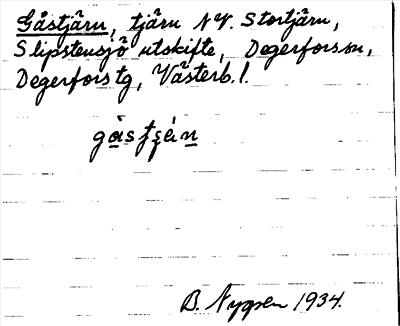 Gåstjärn, tjärn N.V. Stortjärn,
Slipstensjö utskifte, Degerfors sn,
Degerfors tg, Västerb. l.
B. Nygren 1934.